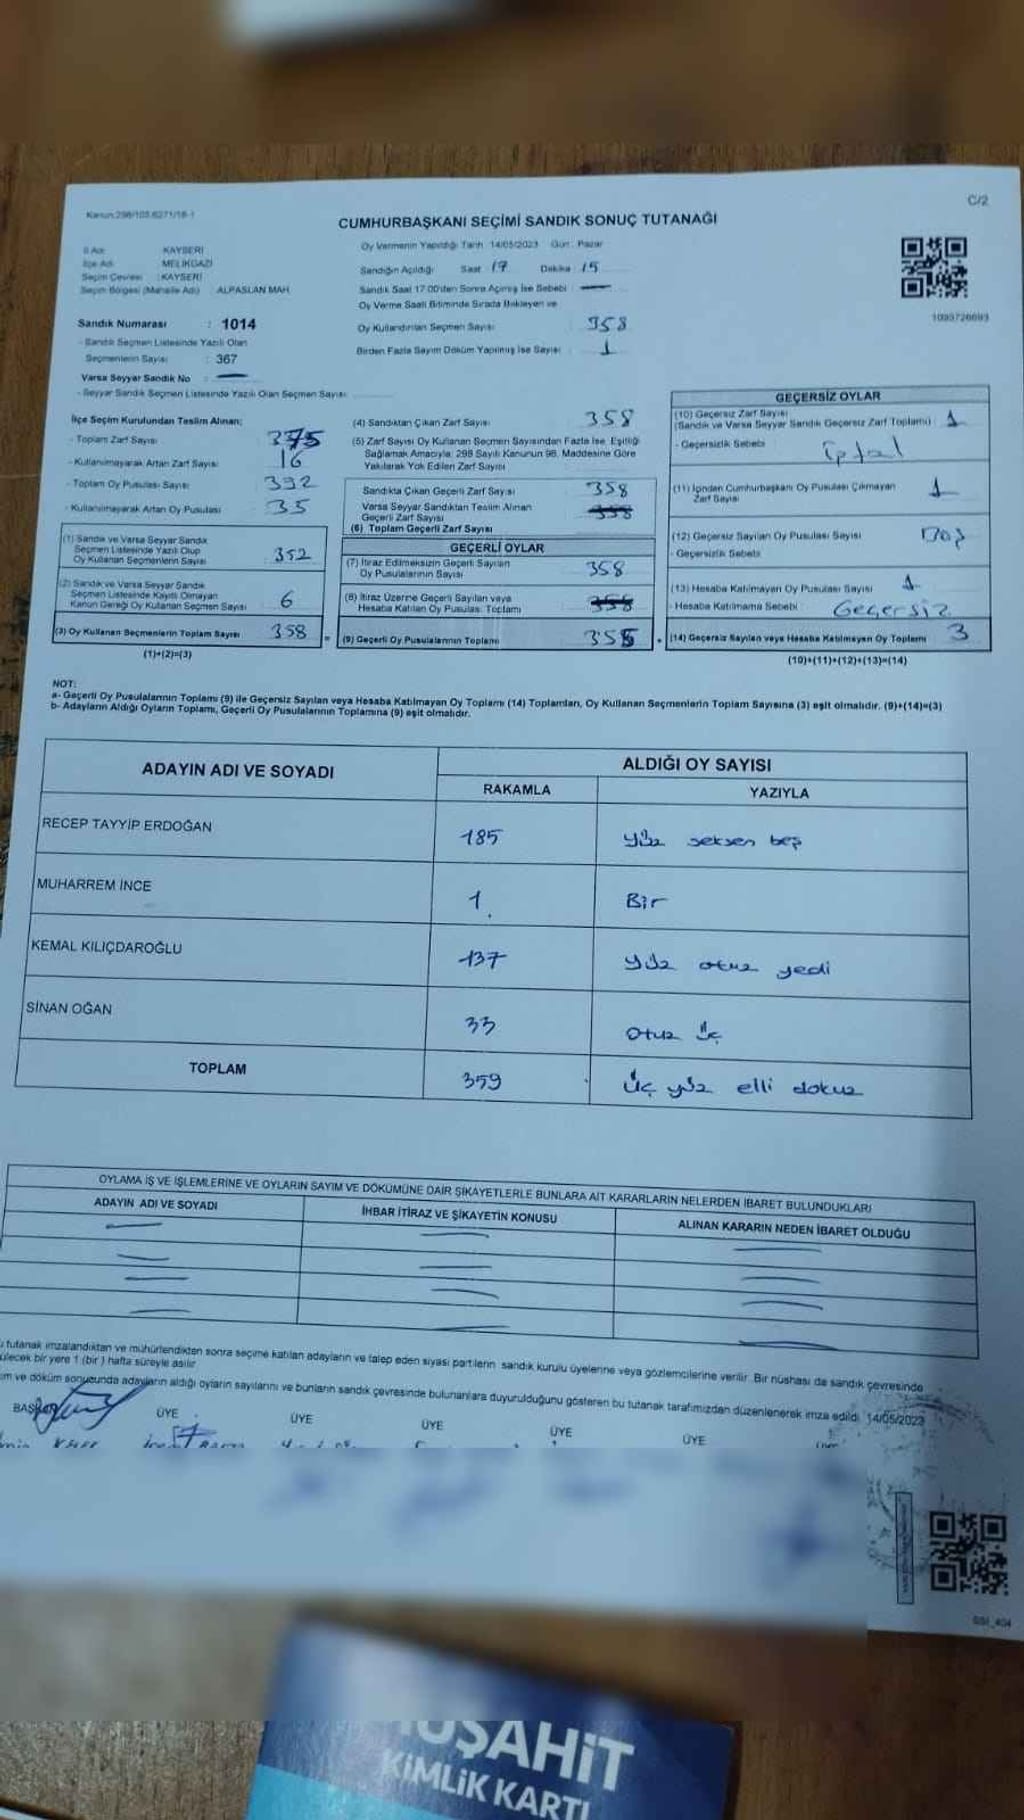 Kanun:298/105.6271/18-1
C/2
CUMHURBAŞKANI SEÇİMİ SANDIK SONUÇ TUTANAĞI
İl Adı : KAYSERİ
İlçe Adı : MELİKGAZİ
Seçim Çevresi : KAYSERİ
Seçim Bölgesi (Mahalle Adı) : ALPASLAN MAH.
Sandık Numarası : 1014
- Sandık Seçmen Listesinde Yazılı Olan
Seçmenlerin Sayısı : 367
Varsa Seyyar Sandık No :
- Seyyar Sandık Seçmen Listesinde Yazılı Olan Seçmen Sayısı
Oy Vermenin Yapıldığı Tarih 14/05/2023 Gün : Pazar
Sandığın Açıldığı Saat 17 Dakika 15
Sandık Saat 17.00'den Sonra Açılmış İse Sebebi :
Oy Verme Saati Bitiminde Sırada Bekleyen ve
Oy Kullandırılan Seçmen Sayısı 358
Birden Fazla Sayım Döküm Yapılmış İse Sayısı : 1
1093726693
İlçe Seçim Kurulundan Teslim Alınan;
- Toplam Zarf Sayısı 375
- Kullanılmayarak Artan Zarf Sayısı 16
- Toplam Oy Pusulası Sayısı 392
- Kullanılmayarak Artan Oy Pusulası 35
(1) Sandık ve Varsa Seyyar Sandık
Seçmen Listesinde Yazılı Olup
Oy Kullanan Seçmenlerin Sayısı 352
(2) Sandık ve Varsa Seyyar Sandık
Seçmen Listesinde Kayıtlı Olmayan
Kanun Gereği Oy Kullanan Seçmen Sayısı 6
(3) Oy Kullanan Seçmenlerin Toplam Sayısı 358
(1)+(2)=(3)
(4) Sandıktan Çıkan Zarf Sayısı 358
(5) Zarf Sayısı Oy Kullanan Seçmen Sayısından Fazla İse, Eşitliği
Sağlamak Amacıyla, 298 Sayılı Kanunun 98. Maddesine Göre
Yakılarak Yok Edilen Zarf Sayısı
Sandıkta Çıkan Geçerli Zarf Sayısı 358
Varsa Seyyar Sandıktan Teslim Alınan
Geçerli Zarf Sayısı 358
(6) Toplam Geçerli Zarf Sayısı
GEÇERLİ OYLAR
(7) İtiraz Edilmeksizin Geçerli Sayılan
Oy Pusulalarının Sayısı 358
(8) İtiraz Üzerine Geçerli Sayılan veya
Hesaba Katılan Oy Pusulası Toplamı 358
(9) Geçerli Oy Pusulalarının Toplamı 355
GEÇERSİZ OYLAR
(10) Geçersiz Zarf Sayısı
(Sandık ve Varsa Seyyar Sandık Geçersiz Zarf Toplamı) 1
- Geçersizlik Sebebi iptal
(11) İçinden Cumhurbaşkanı Oy Pusulası Çıkmayan
Zarf Sayısı 1
(12) Geçersiz Sayılan Oy Pusulası Sayısı Boş
- Geçersizlik Sebebi
(13) Hesaba Katılmayan Oy Pusulası Sayısı 1
- Hesaba Katılmama Sebebi Geçersiz
(14) Geçersiz Sayılan veya Hesaba Katılmayan Oy Toplamı 3
(10)+(11)+(12)+(13)=(14)
NOT:
a- Geçerli Oy Pusulalarının Toplamı (9) ile Geçersiz Sayılan veya Hesaba Katılmayan Oy Toplamı (14) Toplamları, Oy Kullanan Seçmenlerin Toplam Sayısına (3) eşit olmalıdır. (9)+(14)=(3)
b- Adayların Aldığı Oyların Toplamı, Geçerli Oy Pusulalarının Toplamına (9) eşit olmalıdır.
ADAYIN ADI VE SOYADI
ALDIĞI OY SAYISI
RAKAMLA YAZIYLA
RECEP TAYYİP ERDOĞAN 185 Yüz seksen beş
MUHARREM İNCE 1. Bir
KEMAL KILIÇDAROĞLU 137 Yüz otuz yedi
SİNAN OĞAN 33 Otuz üç
TOPLAM 359 Üç yüz elli dokuz
OYLAMA İŞ VE İŞLEMLERİNE VE OYLARIN SAYIM VE DÖKÜMÜNE DAİR ŞİKAYETLERLE BUNLARA AİT KARARLARIN NELERDEN İBARET BULUNDUKLARI
ADAYIN ADI VE SOYADI İHBAR İTİRAZ VE ŞİKAYETİN KONUSU ALINAN KARARIN NEDEN İBARET OLDUĞU
tutanak imzalandıktan ve mühürlendikten sonra seçime katılan adayların ve talep eden siyasi partilerin sandık kurulu üyelerine veya gözlemcilerine verilir. Bir nüshası da sandık çevresinde
bir yere 1 (bir) hafta süreyle asılır
ve döküm sonucunda adayların aldığı oyların sayılarını ve bunların sandık çevresinde bulunanlara duyurulduğunu gösteren bu tutanak tarafımızdan düzenlenerek imza edildi. 14/05/2023
ÜYE ÜYE ÜYE ÜYE ÜYE
KİMLİK KARTI